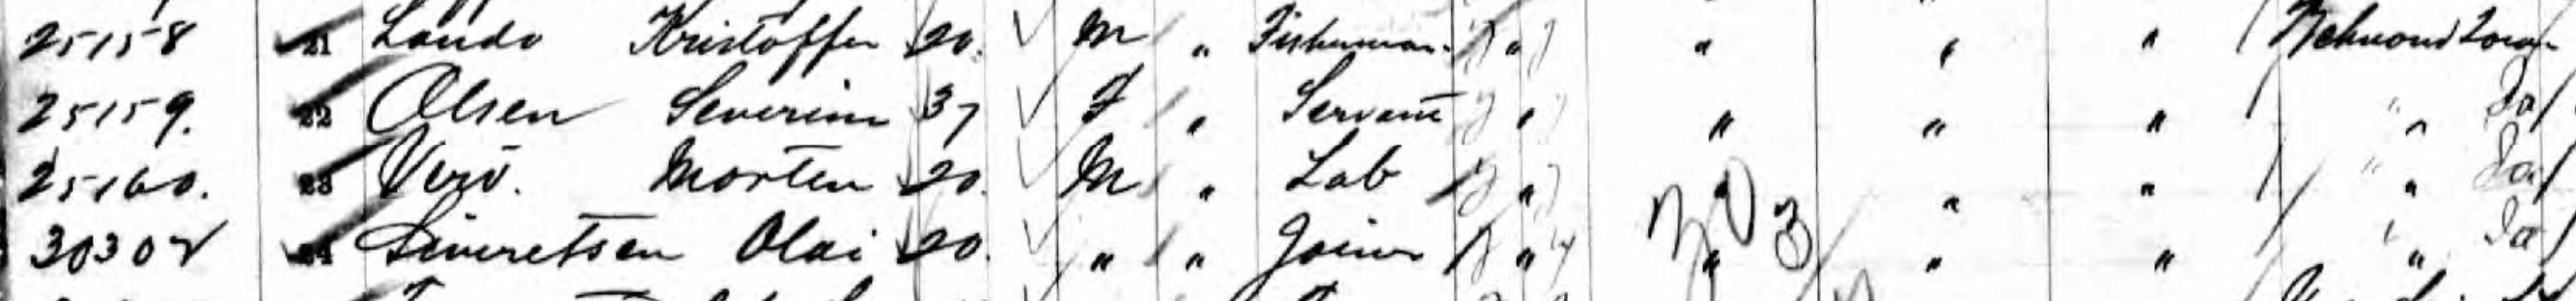 25158 21 Lande Kristoffer 20. M " Fisherman " " " "
25159. 22 Olsen Severine 37 F " Servant " " " " " Ia
25160. 23 Morten 20. M " Lab " " " " " Ia
30302 24 Siveretsen Olai 20. " " Joiner " " " " " Ia